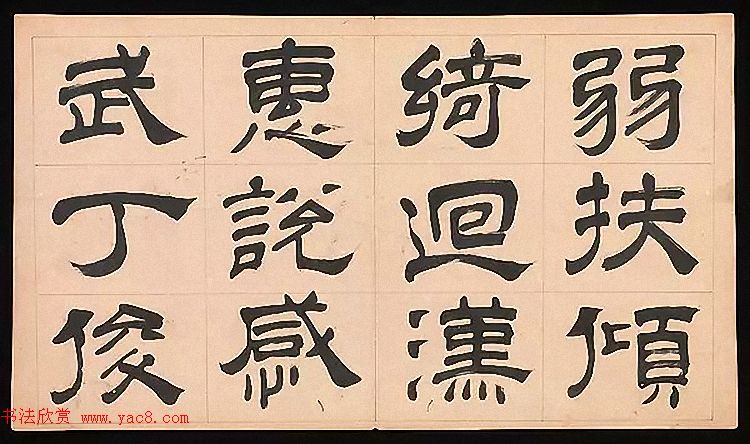 弱扶傾
綺迴漢
惠說感
武丁俊
书法欣赏 www.yac8.com